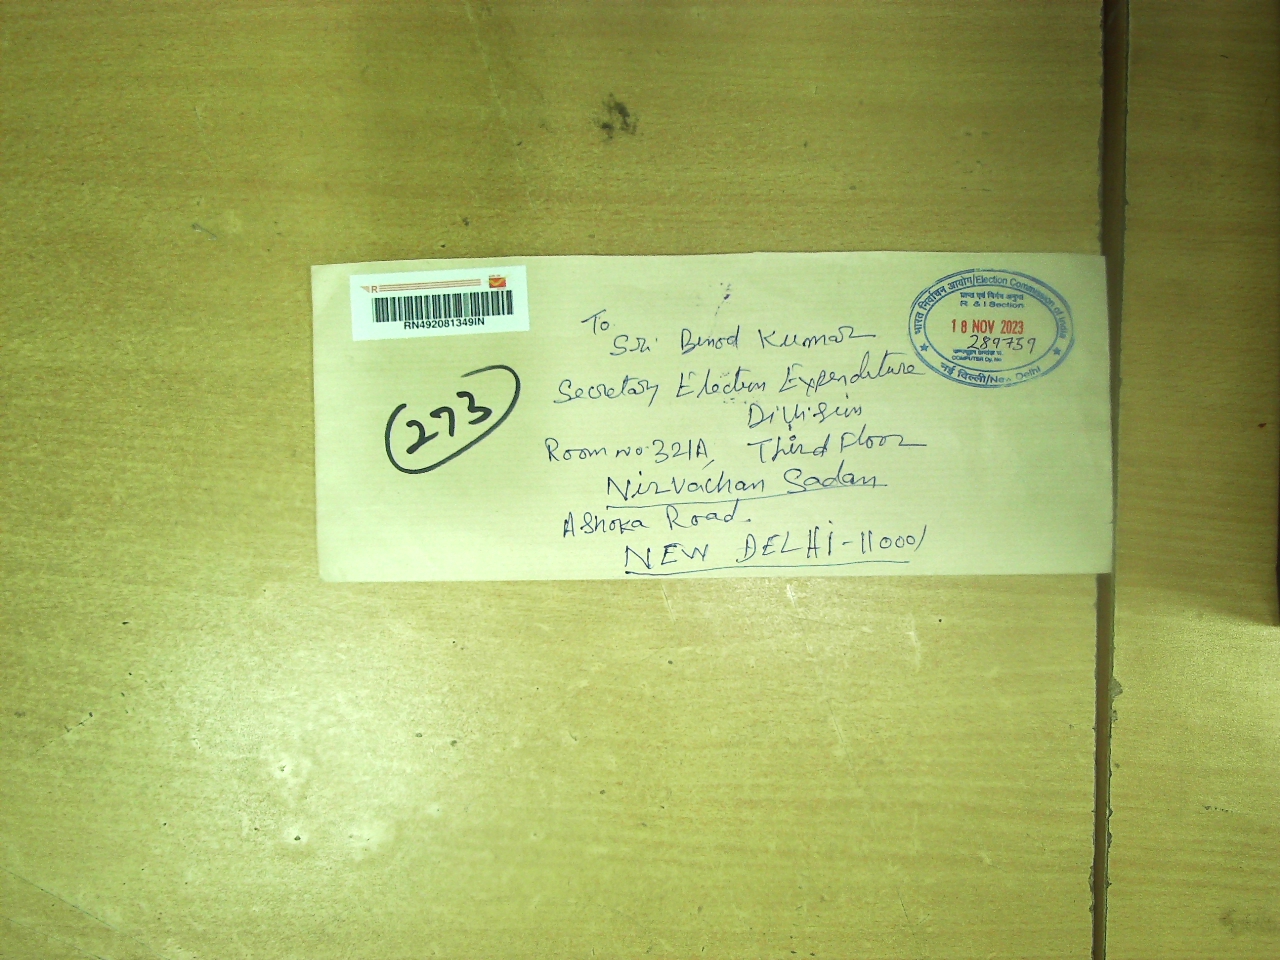 R
RN492081349IN
273
To
Sri Binod Kumar
Secretary Election Expenditure
Division
Room no. 321A, Third Floor
Nirvachan Sadan
Ashoka Road.
NEW DELHI-110001
भारत निर्वाचन आयोग/Election Commission of India
प्राप्त एवं निर्गम अनुभाग
R & I Section
18 NOV 2023
289759
COMPUTER Dy. No
नई दिल्ली/New Delhi